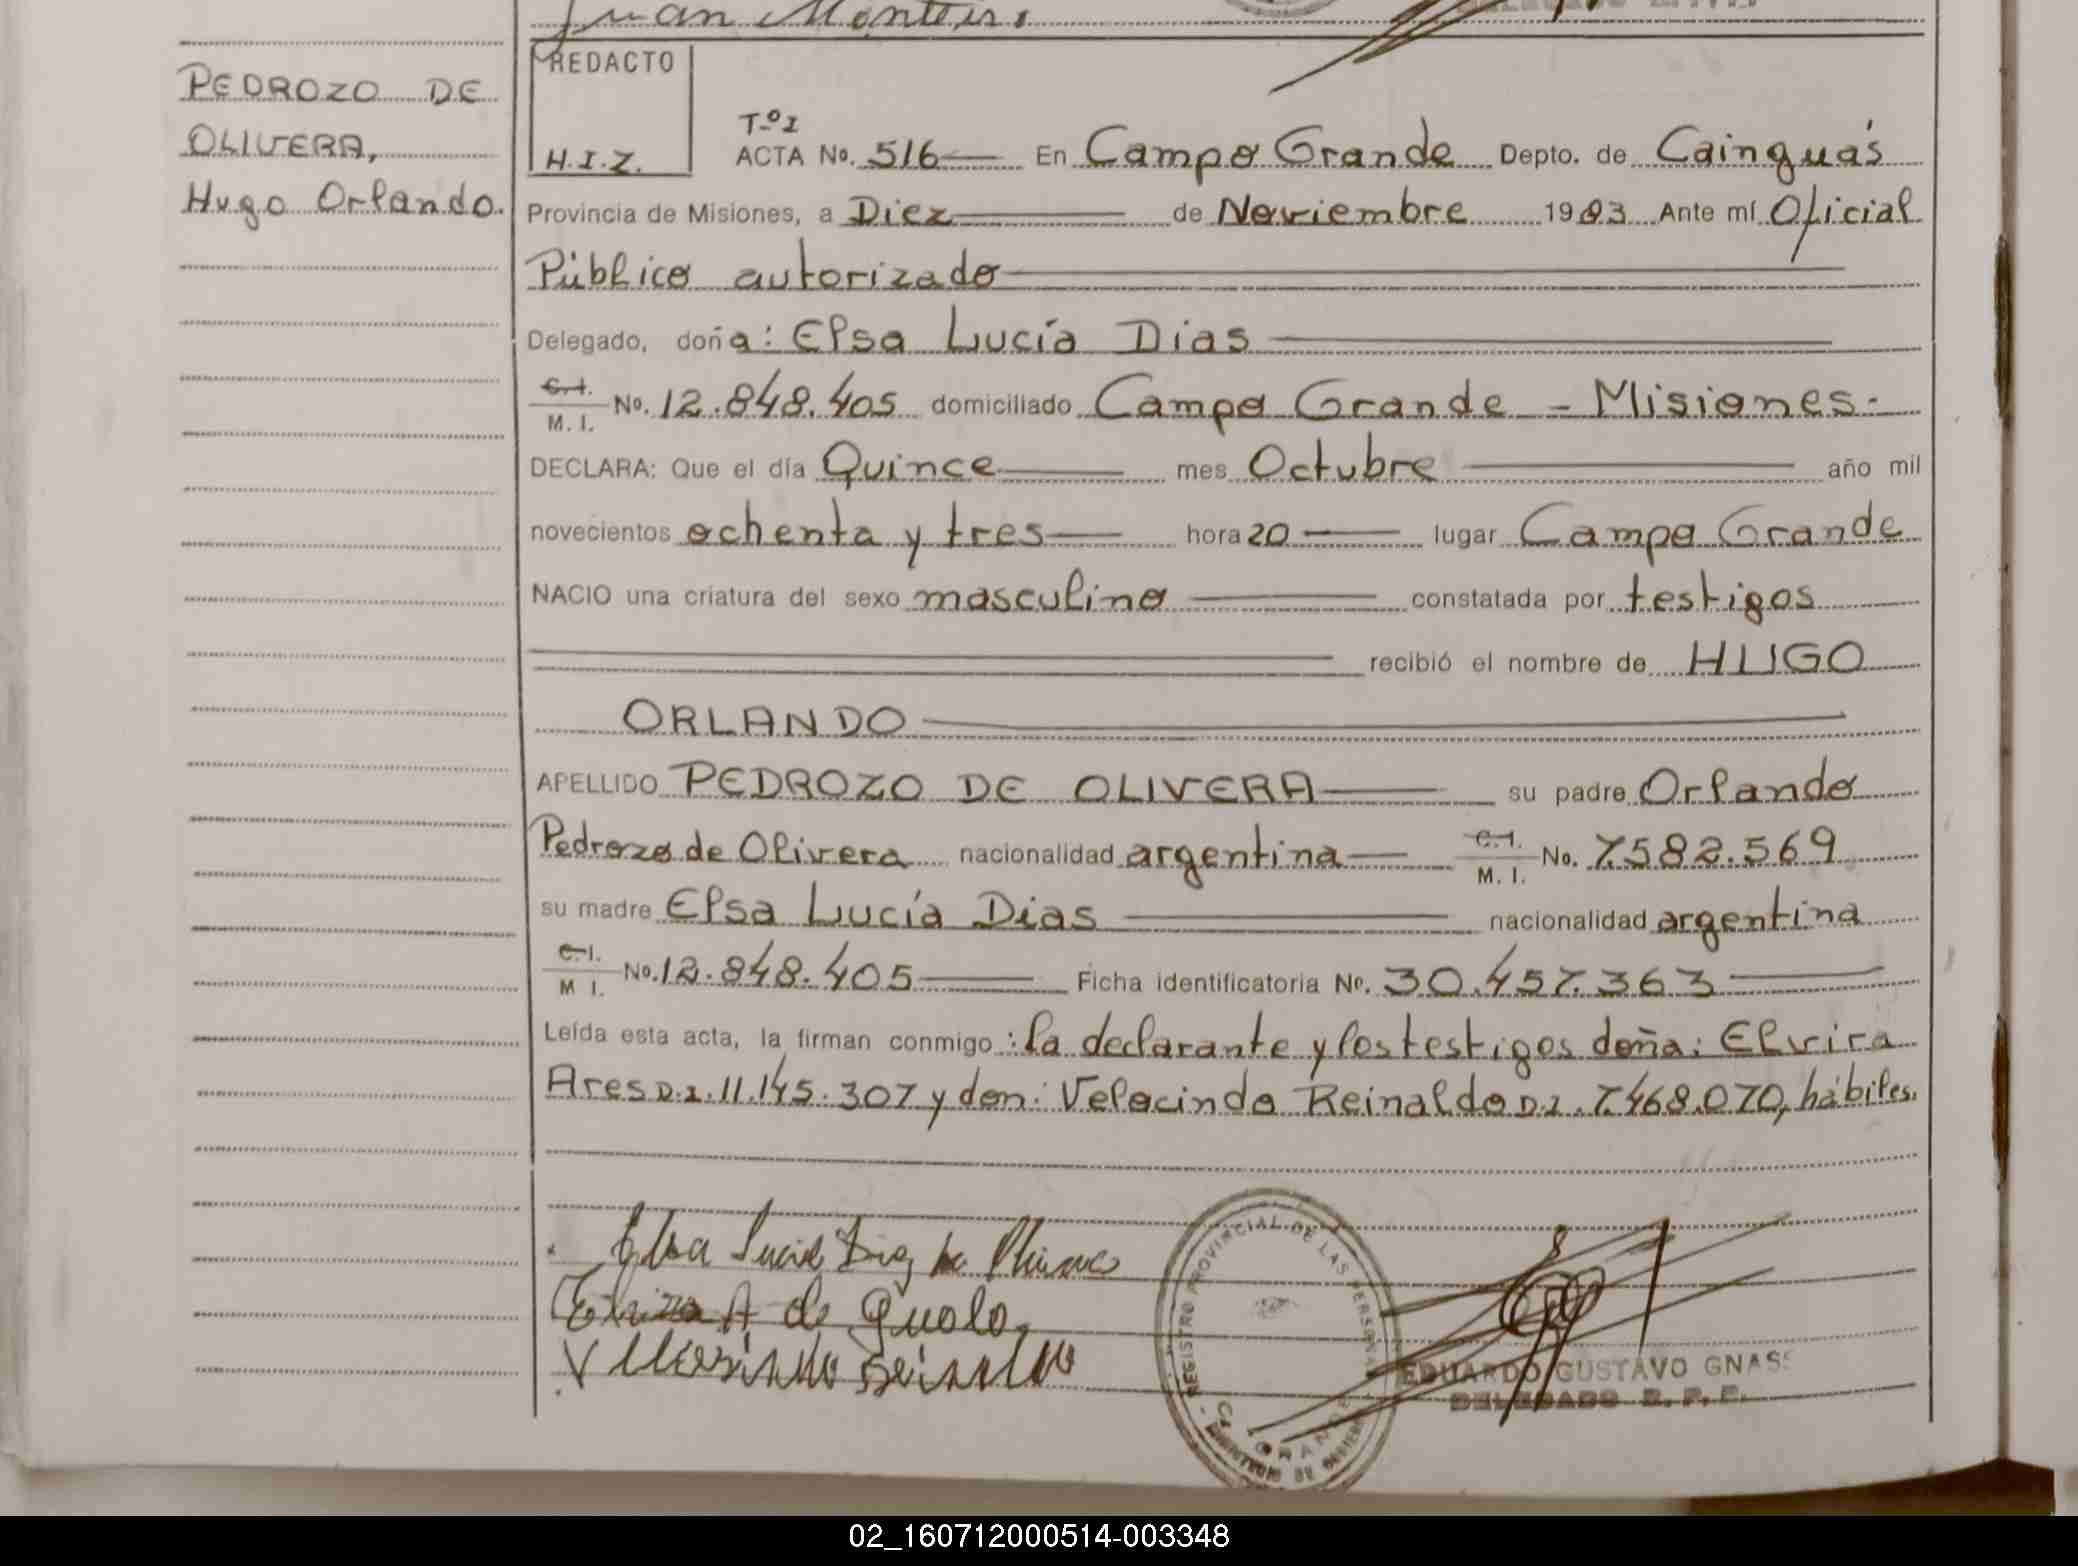 Juan Monteir.
PEDROZO DE
OLIVERA,
Hugo Orlando.
REDACTO
H.I.Z.
Tº I
ACTA No. 516 En Campo Grande Depto. de Cainguás
Provincia de Misiones, a Diez de Noviembre 1983 Ante mí Oficial
Público autorizado
Delegado, doña: Elsa Lucía Dias
C.I. / M. I. No. 12.848.405 domiciliado Campo Grande - Misiones.
DECLARA: Que el día Quince mes Octubre año mil
novecientos ochenta y tres hora 20 lugar Campo Grande
NACIO una criatura del sexo masculino constatada por testigos
recibió el nombre de HUGO
ORLANDO
APELLIDO PEDROZO DE OLIVERA su padre Orlando
Pedrozo de Olivera nacionalidad argentina C.I. / M. I. No. 7.582.569
su madre Elsa Lucía Dias nacionalidad argentina
C.I. / M I. No. 12.848.405 Ficha identificatoria No. 30.457.363
Leída esta acta, la firman conmigo: la declarante y los testigos doña: Elvira
Ares D.I. 11.145.307 y don: Velocindo Reinaldo D.I. 7.468.070, hábiles.
Elsa Lucia Diaz de
A de
REGISTRO PROVINCIAL DE LAS PERSONAS
EDUARDO GUSTAVO GNASS
DELEGADO R. P. P.
02_160712000514-003348